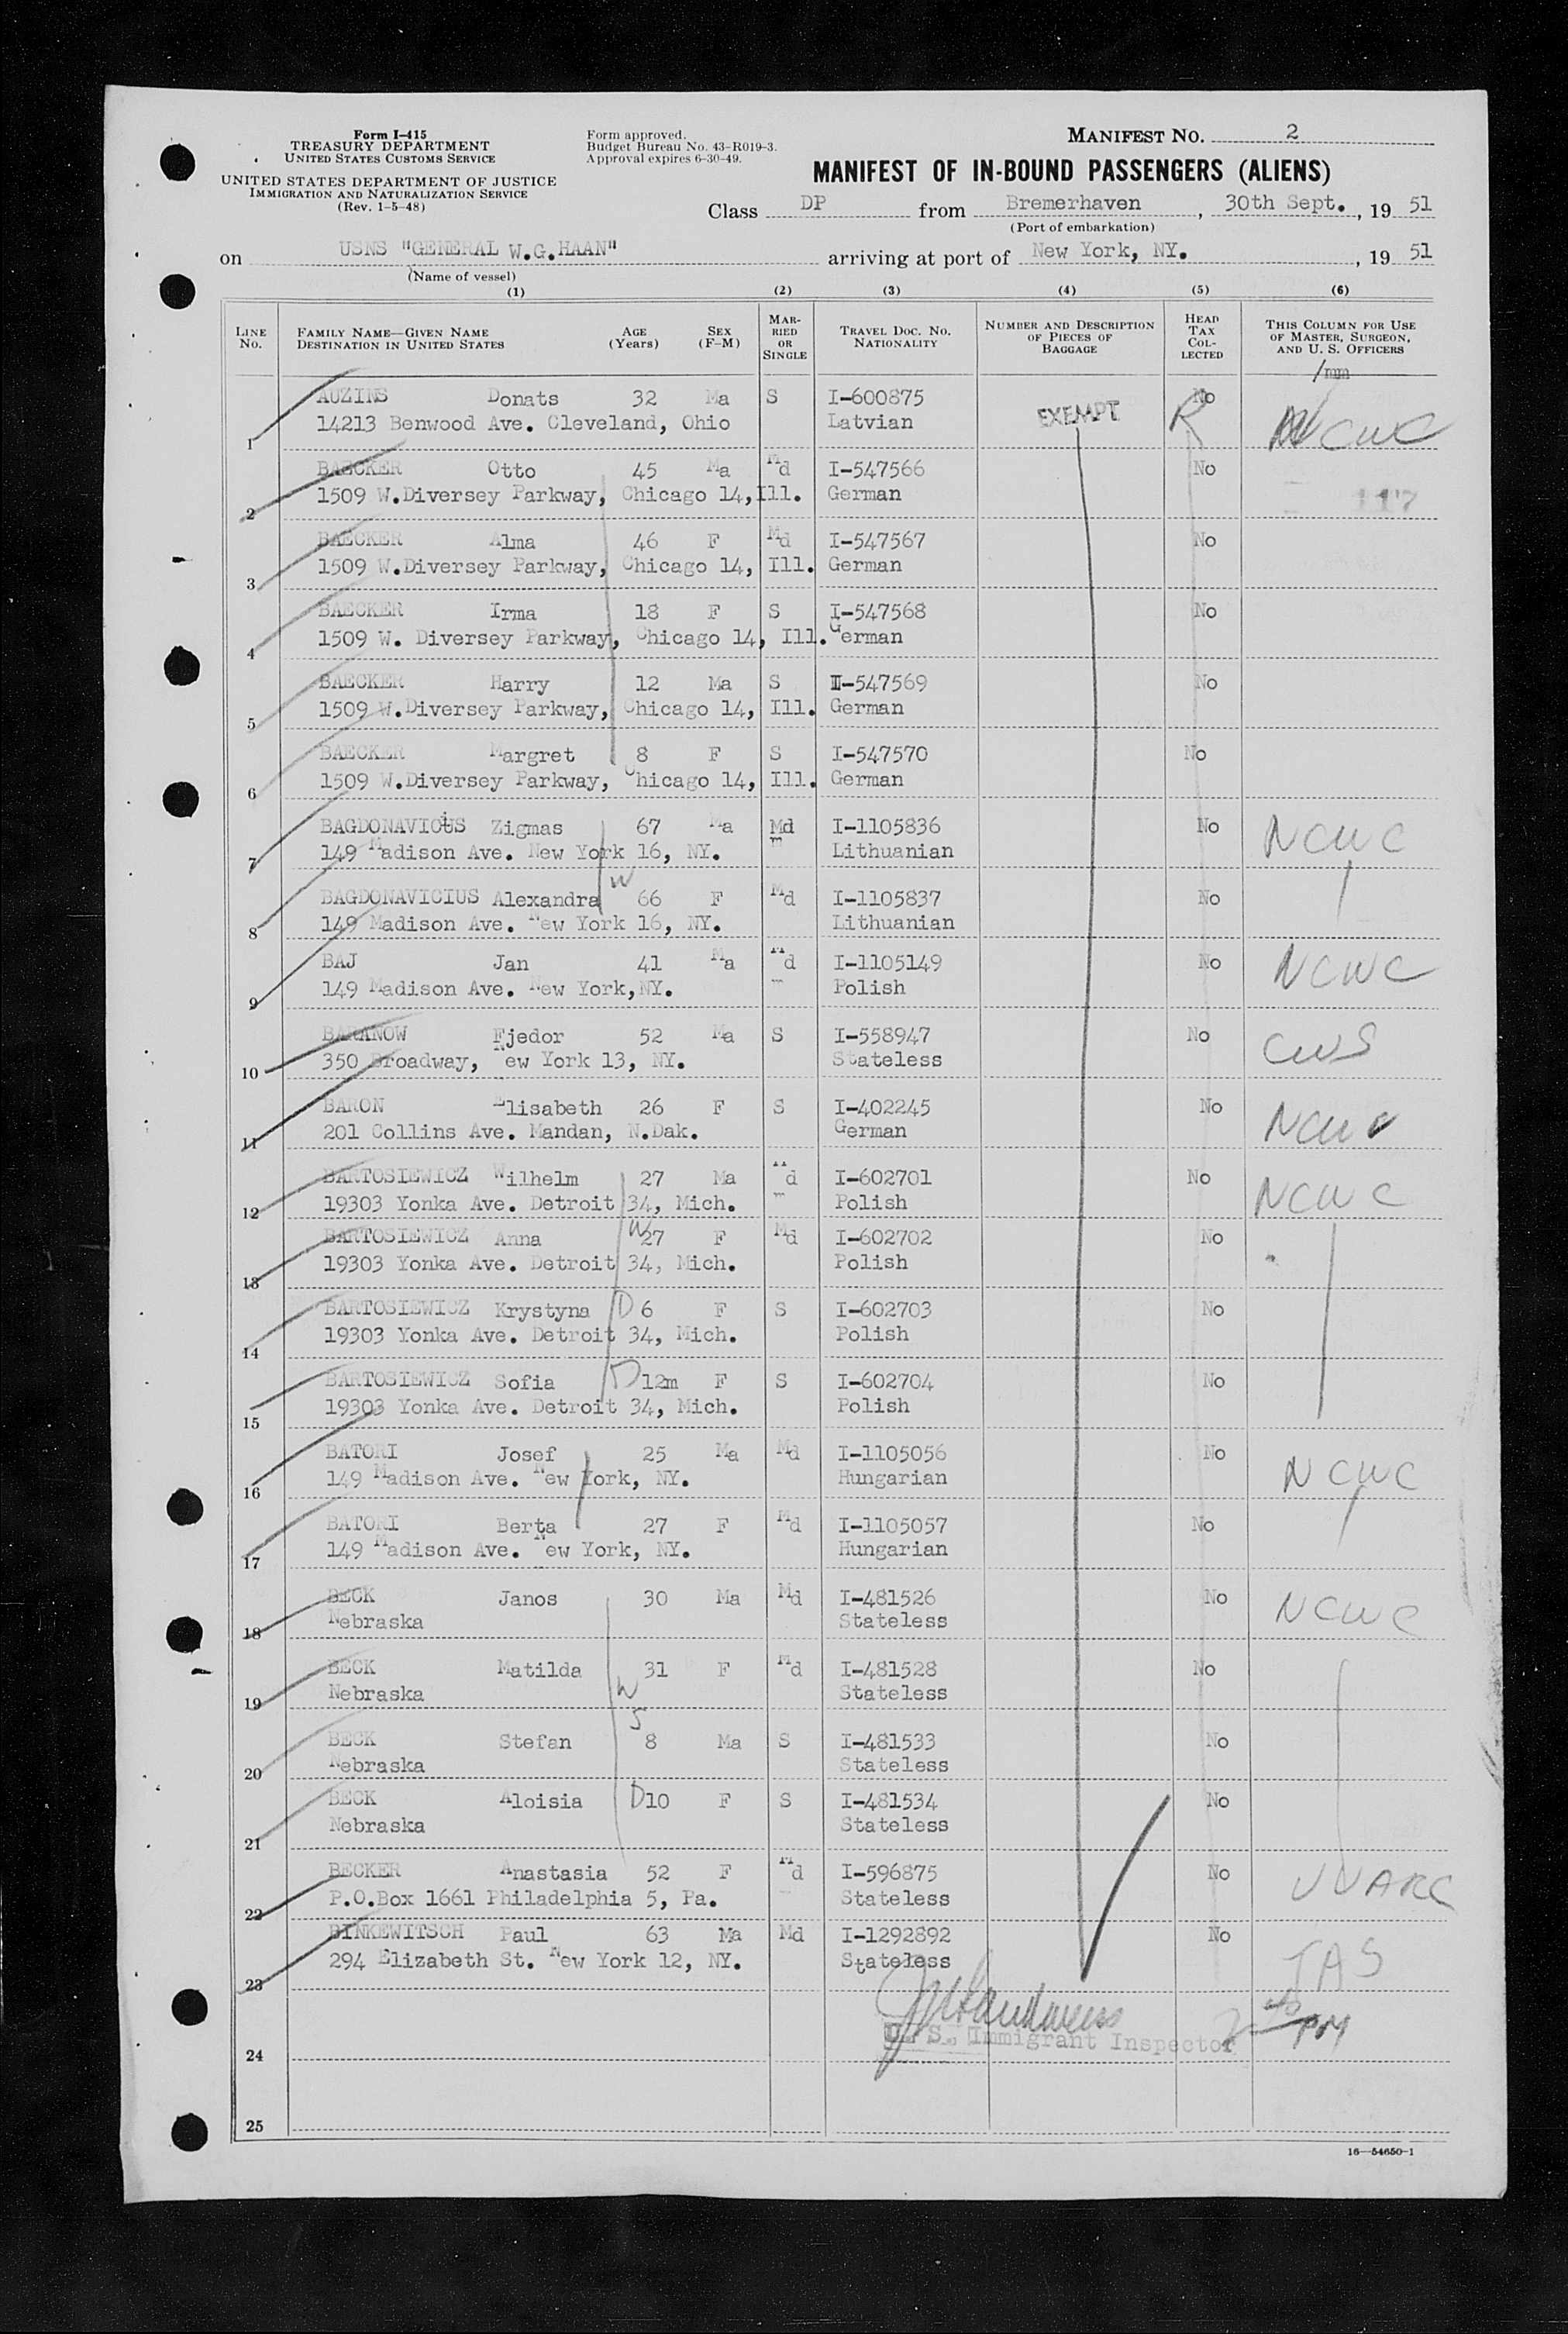 Form I-415
TREASURY DEPARTMENT
UNITED STATES CUSTOMS SERVICE
UNITED STATES DEPARTMENT OF JUSTICE
IMMIGRATION AND NATURALIZATION SERVICE
(Rev. 1-5-48)
Form approved.
Budget Bureau No. 43-R019-3.
Approval expires 6-30-49.
MANIFEST NO. 2
MANIFEST OF IN-BOUND PASSENGERS (ALIENS)
Class DP from Bremerhaven, 30th Sept., 19 51
(Port of embarkation)
on USNS "GENERAL W.G.HAAN" arriving at port of New York, NY., 19 51
(Name of vessel)
(1) (2) (3) (4) (5) (6)
LINE NO. FAMILY NAME—GIVEN NAME DESTINATION IN UNITED STATES AGE (Years) SEX (F-M) MARRIED OR SINGLE TRAVEL DOC. NO. NATIONALITY NUMBER AND DESCRIPTION OF PIECES OF BAGGAGE HEAD TAX COLLECTED THIS COLUMN FOR USE OF MASTER, SURGEON, AND U. S. OFFICERS
AUZINS Donats 32 Ma S I-600875 No
1 14213 Benwood Ave. Cleveland, Ohio Latvian EXEMPT R NCWC
BAECKER Otto 45 Ma Md I-547566 No
2 1509 W.Diversey Parkway, Chicago 14, Ill. German 117
BAECKER Alma 46 F Md I-547567 No
3 1509 W.Diversey Parkway, Chicago 14, Ill. German
BAECKER Irma 18 F S I-547568 No
4 1509 W. Diversey Parkway, Chicago 14, Ill. German
BAECKER Harry 12 Ma S I-547569 No
5 1509 W.Diversey Parkway, Chicago 14, Ill. German
BAECKER Margret 8 F S I-547570 No
6 1509 W.Diversey Parkway, Chicago 14, Ill. German
BAGDONAVICIUS Zigmas 67 Ma Md I-1105836 No NCWC
7 149 Madison Ave. New York 16, NY. Lithuanian
W
BAGDONAVICIUS Alexandra 66 F Md I-1105837 No
8 149 Madison Ave. New York 16, NY. Lithuanian
BAJ Jan 41 Ma Md I-1105149 No NCWC
9 149 Madison Ave. New York,NY. Polish
BARANOW Fjedor 52 Ma S I-558947 No CWS
10 350 Broadway, New York 13, NY. Stateless
BARON Elisabeth 26 F S I-402245 No NCWC
11 201 Collins Ave. Mandan, N.Dak. German
BARTOSIEWICZ Wilhelm 27 Ma Md I-602701 No NCWC
12 19303 Yonka Ave. Detroit 34, Mich. Polish
BARTOSIEWICZ Anna W 27 F Md I-602702 No
13 19303 Yonka Ave. Detroit 34, Mich. Polish
BARTOSIEWICZ Krystyna D 6 F S I-602703 No
14 19303 Yonka Ave. Detroit 34, Mich. Polish
BARTOSIEWICZ Sofia D 12m F S I-602704 No
15 19303 Yonka Ave. Detroit 34, Mich. Polish
BATORI Josef 25 Ma Md I-1105056 No NCWC
16 149 Madison Ave. New York, NY. Hungarian
BATORI Berta 27 F Md I-1105057 No
17 149 Madison Ave. New York, NY. Hungarian
BECK Janos 30 Ma Md I-481526 No NCWC
18 Nebraska Stateless
BECK Matilda 31 F Md I-481528 No
19 Nebraska W Stateless
S
BECK Stefan 8 Ma S I-481533 No
20 Nebraska Stateless
BECK Aloisia D 10 F S I-481534 No
21 Nebraska Stateless
BECKER Anastasia 52 F Md I-596875 No
22 P.O.Box 1661 Philadelphia 5, Pa. Stateless
BINKEWITSCH Paul 63 Ma Md I-1292892 No
23 294 Elizabeth St. New York 12, NY. Stateless
U. S. Immigrant Inspector PM
24
25
16—54650-1